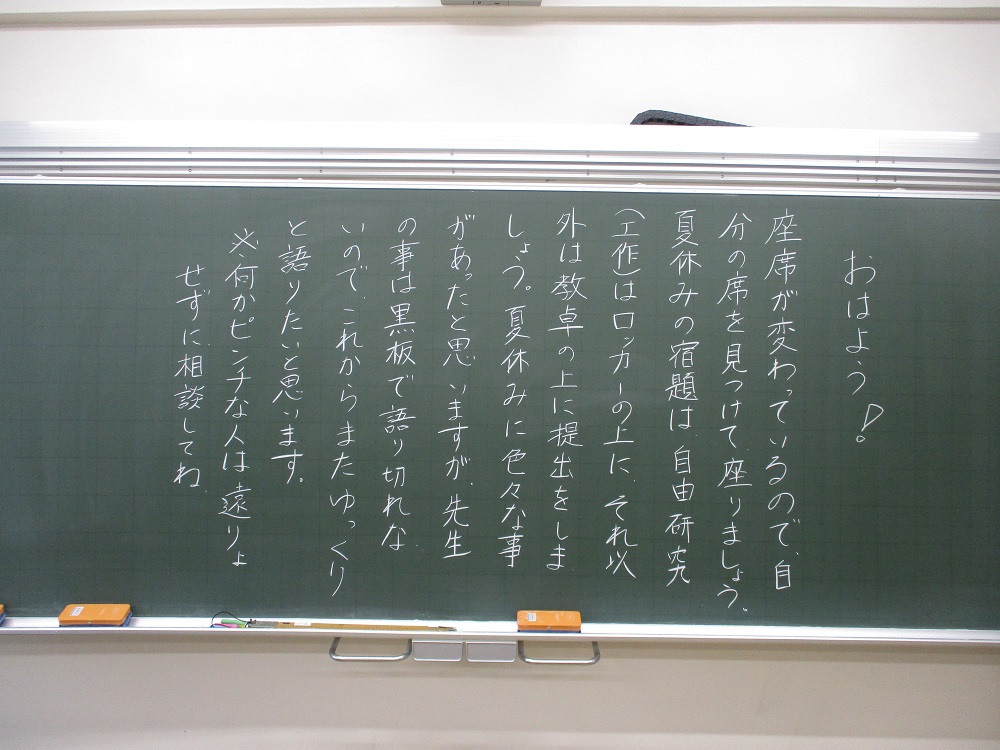 おはよう!
座席が変わっているので、自
分の席を見つけて、座りましょう。
夏休みの宿題は、自由研究
(工作)はロッカーの上に、それ以
外は教卓の上に提出をしま
しょう。夏休みに色々な事
があったと思いますが、先生
の事は黒板で語り切れな
いので、これからまたゆっくり
と語りたいと思います。
※何かピンチな人は遠りょ
せずに相談してね。